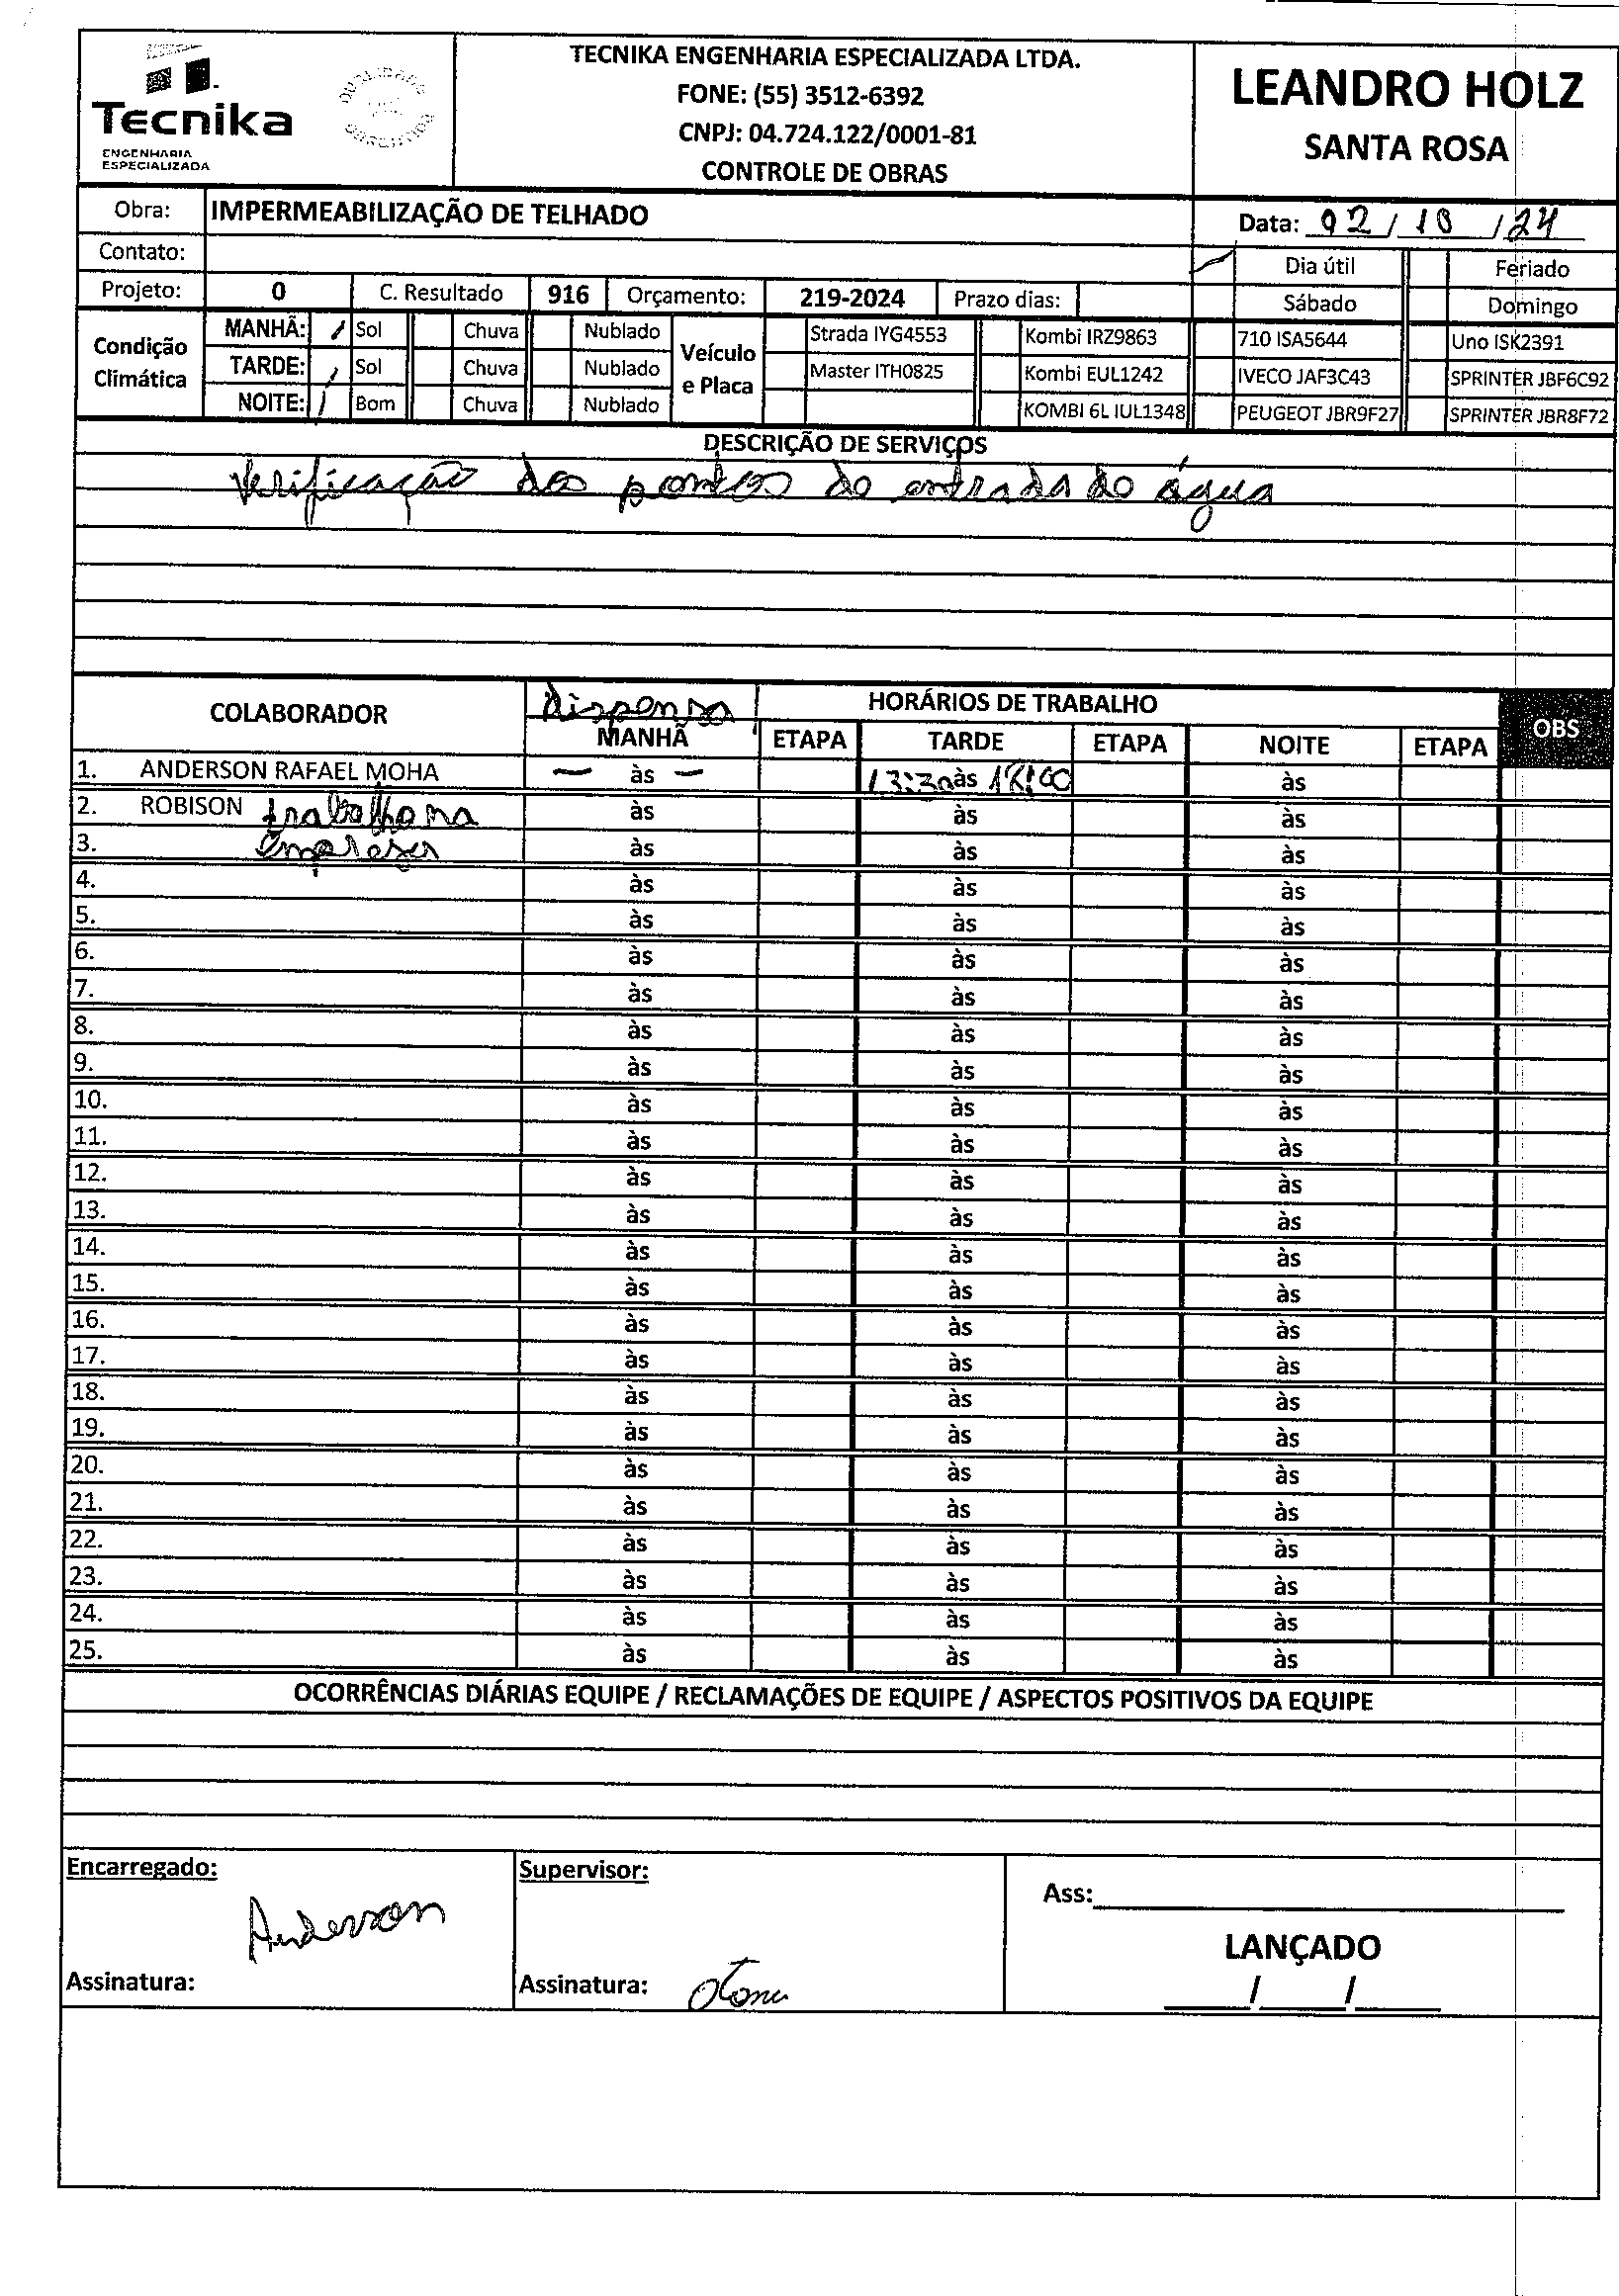 Tecnika
ENGENHARIA
ESPECIALIZADA
TECNIKA ENGENHARIA ESPECIALIZADA LTDA.
FONE: (55) 3512-6392
CNPJ: 04.724.122/0001-81
CONTROLE DE OBRAS
LEANDRO HOLZ
SANTA ROSA
Obra: IMPERMEABILIZAÇÃO DE TELHADO
Data: 02/10/24
Contato:
Dia útil Feriado
Projeto: 0 C. Resultado 916 Orçamento: 219-2024 Prazo dias:
Sábado Domingo
Condição Climática
MANHÃ: / Sol Chuva Nublado
TARDE: / Sol Chuva Nublado
NOITE: / Bom Chuva Nublado
Veículo e Placa
Strada IYG4553 Kombi IRZ9863 710 ISA5644 Uno ISK2391
Master ITH0825 Kombi EUL1242 IVECO JAF3C43 SPRINTER JBF6C92
KOMBI 6L IUL1348 PEUGEOT JBR9F27 SPRINTER JBR8F72
DESCRIÇÃO DE SERVIÇOS
Verificação dos pontos de entrada de água
COLABORADOR Dispensa HORÁRIOS DE TRABALHO OBS
MANHÃ ETAPA TARDE ETAPA NOITE ETAPA
1. ANDERSON RAFAEL MOHA — às — 13:30 às 18:00 às
2. ROBISON trabalho na às às às
3. Empresa às às às
4. às às às
5. às às às
6. às às às
7. às às às
8. às às às
9. às às às
10. às às às
11. às às às
12. às às às
13. às às às
14. às às às
15. às às às
16. às às às
17. às às às
18. às às às
19. às às às
20. às às às
21. às às às
22. às às às
23. às às às
24. às às às
25. às às às
OCORRÊNCIAS DIÁRIAS EQUIPE / RECLAMAÇÕES DE EQUIPE / ASPECTOS POSITIVOS DA EQUIPE
Encarregado:
Anderson
Assinatura:
Supervisor:
Assinatura:
Ass:
LANÇADO
/ /